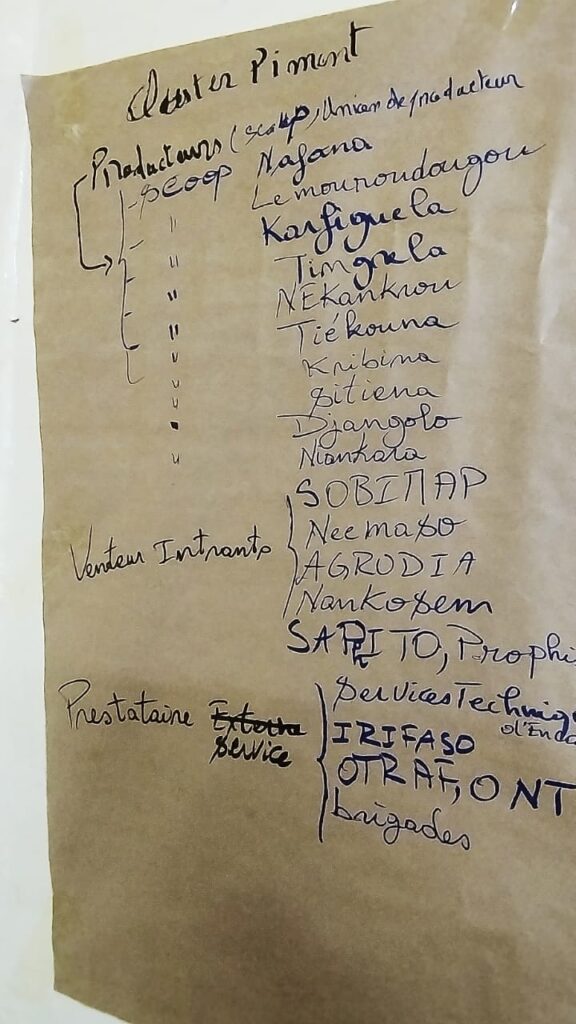 Cluster Piment
Producteurs (scoop, Union de producteur
- SCOOP Nafana
" Lemouroudougou
" Karfiguela
" Timgrela
" NEKankrou
" Tiékouna
" Kribina
" Sitiena
" Djangolo
" Niankara
Vendeur Intrants
SOBIMAP
Neemaso
AGRODIA
Nankosem
SAPHITO, Prophi
Prestataire Service
Services Techniq
d'Enca
IRIFASO
OTRAF, ONT
brigades